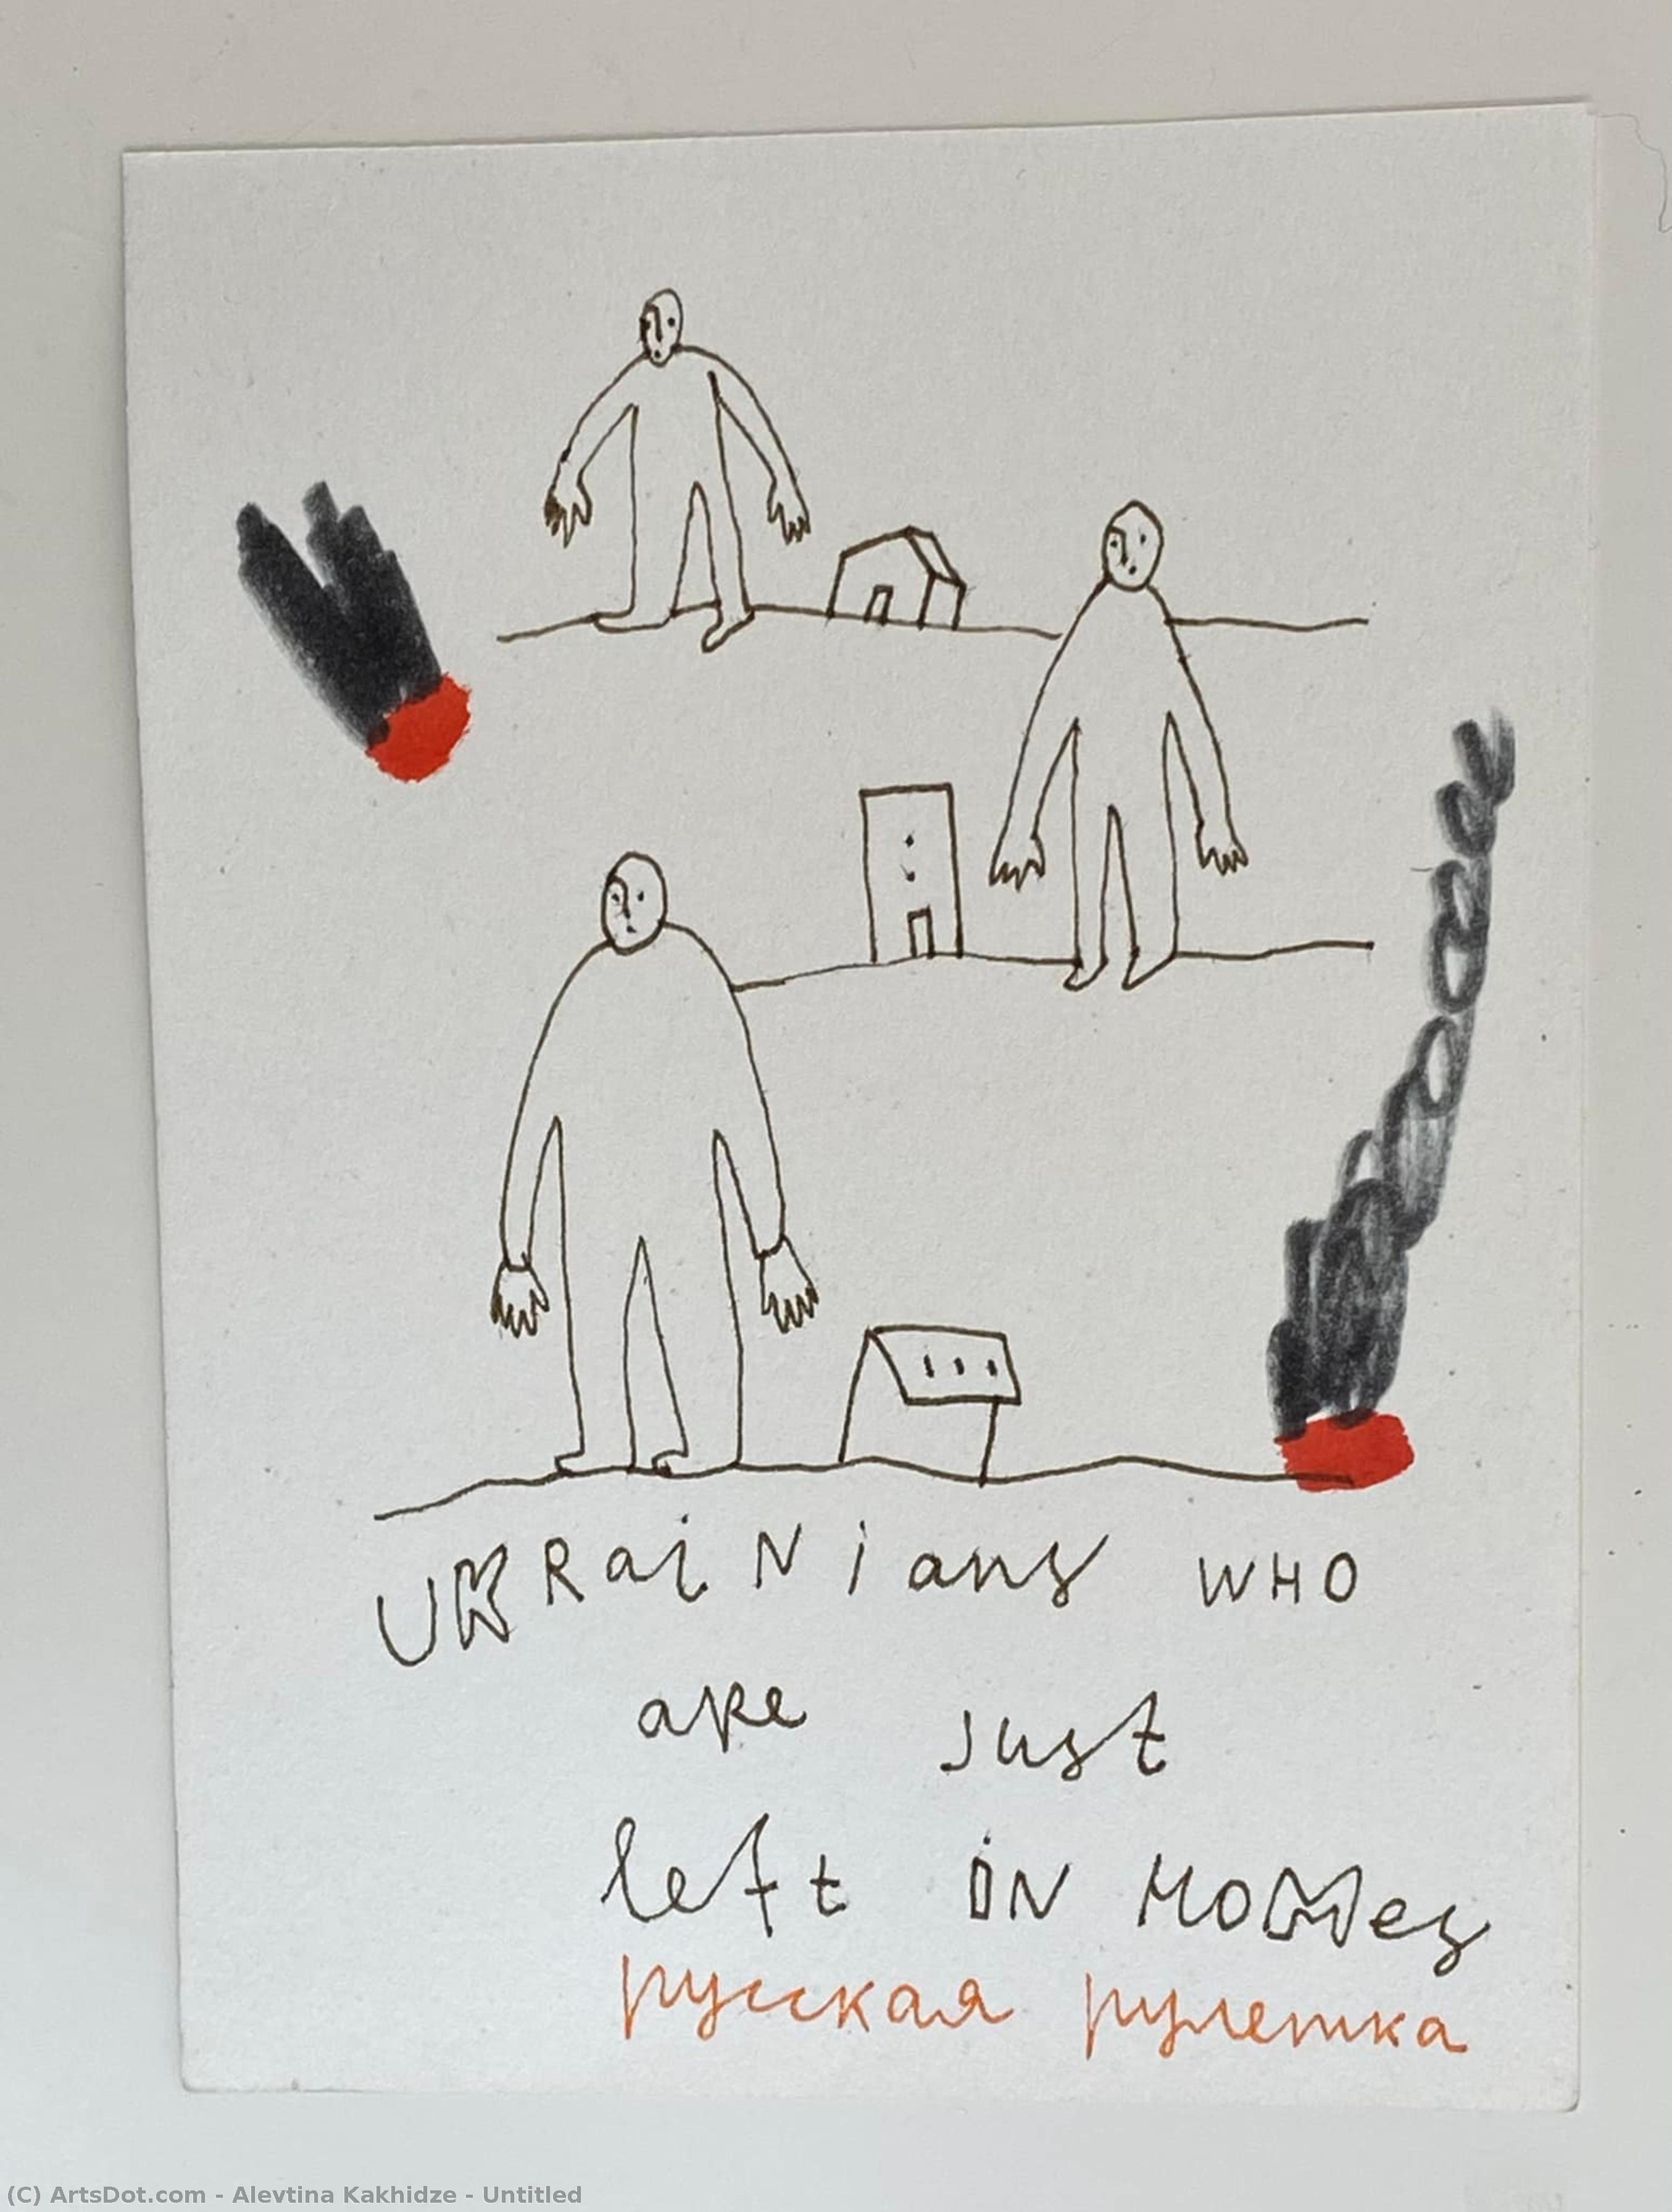 UKRaiNians WHO
aRe just
left iN HOMes
русская рулетка
(C) ArtsDot.com - Alevtina Kakhidze - Untitled